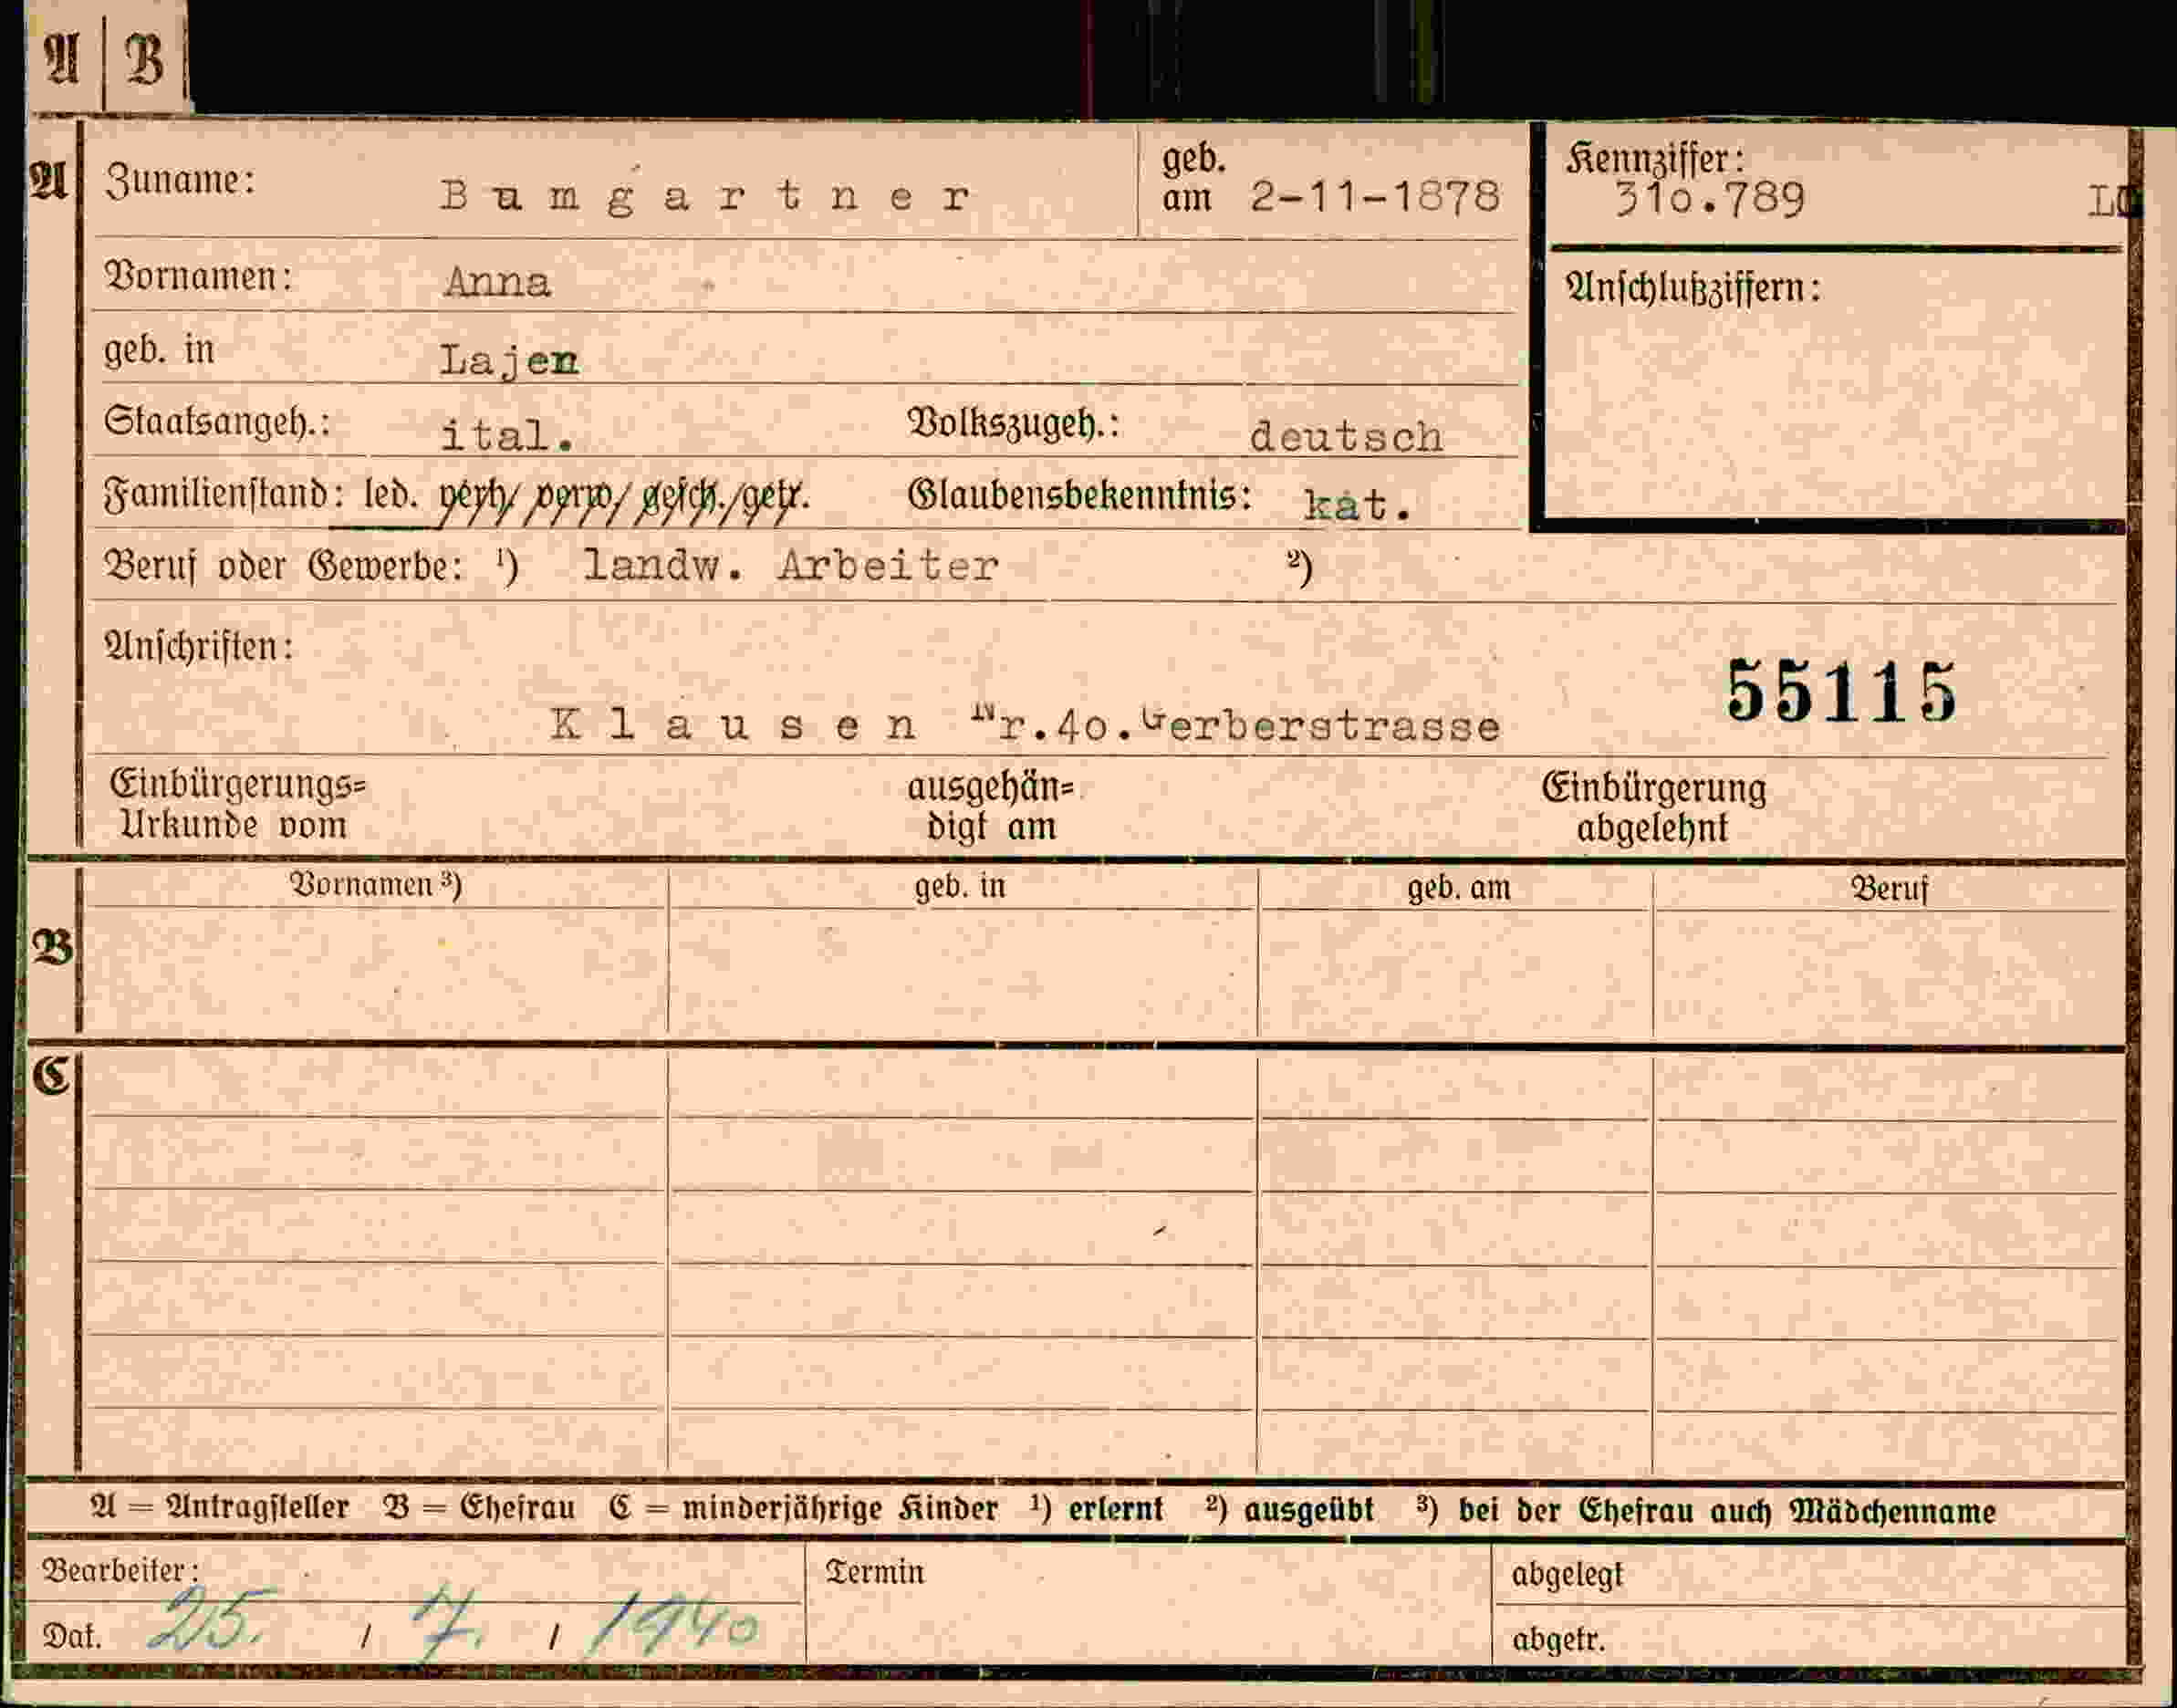 A B
A Zuname: Bumgartner geb. am 2-11-1878 Kennziffer: 31o.789
Vornamen: Anna Anschlußziffern:
geb. in Lajen
Staatsangeh.: ital. Volkszugeh.: deutsch
Familienstand: led. verh/ verw/ gesch./getr. Glaubensbekenntnis: kat.
Beruf oder Gewerbe: ¹) landw. Arbeiter ²)
Anschriften:
55115
Klausen Nr.4o.Gerberstrasse
Einbürgerungs= ausgehän= Einbürgerung
Urkunde vom digt am abgelehnt
Vornamen ³) geb. in geb. am Beruf
B
C
A = Antragsteller B = Ehefrau C = minderjährige Kinder ¹) erlernt ²) ausgeübt ³) bei der Ehefrau auch Mädchenname
Bearbeiter: Termin abgelegt
Dat. 25. / 7. / 1940 abgetr.